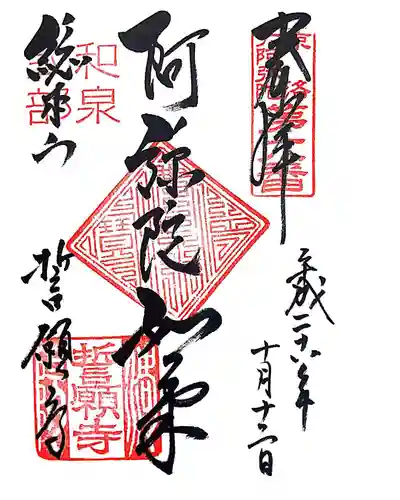 奉拝
平成二十六年
十月十二日
阿弥陀如来
総本山
誓願寺
和泉
式部
誓願寺